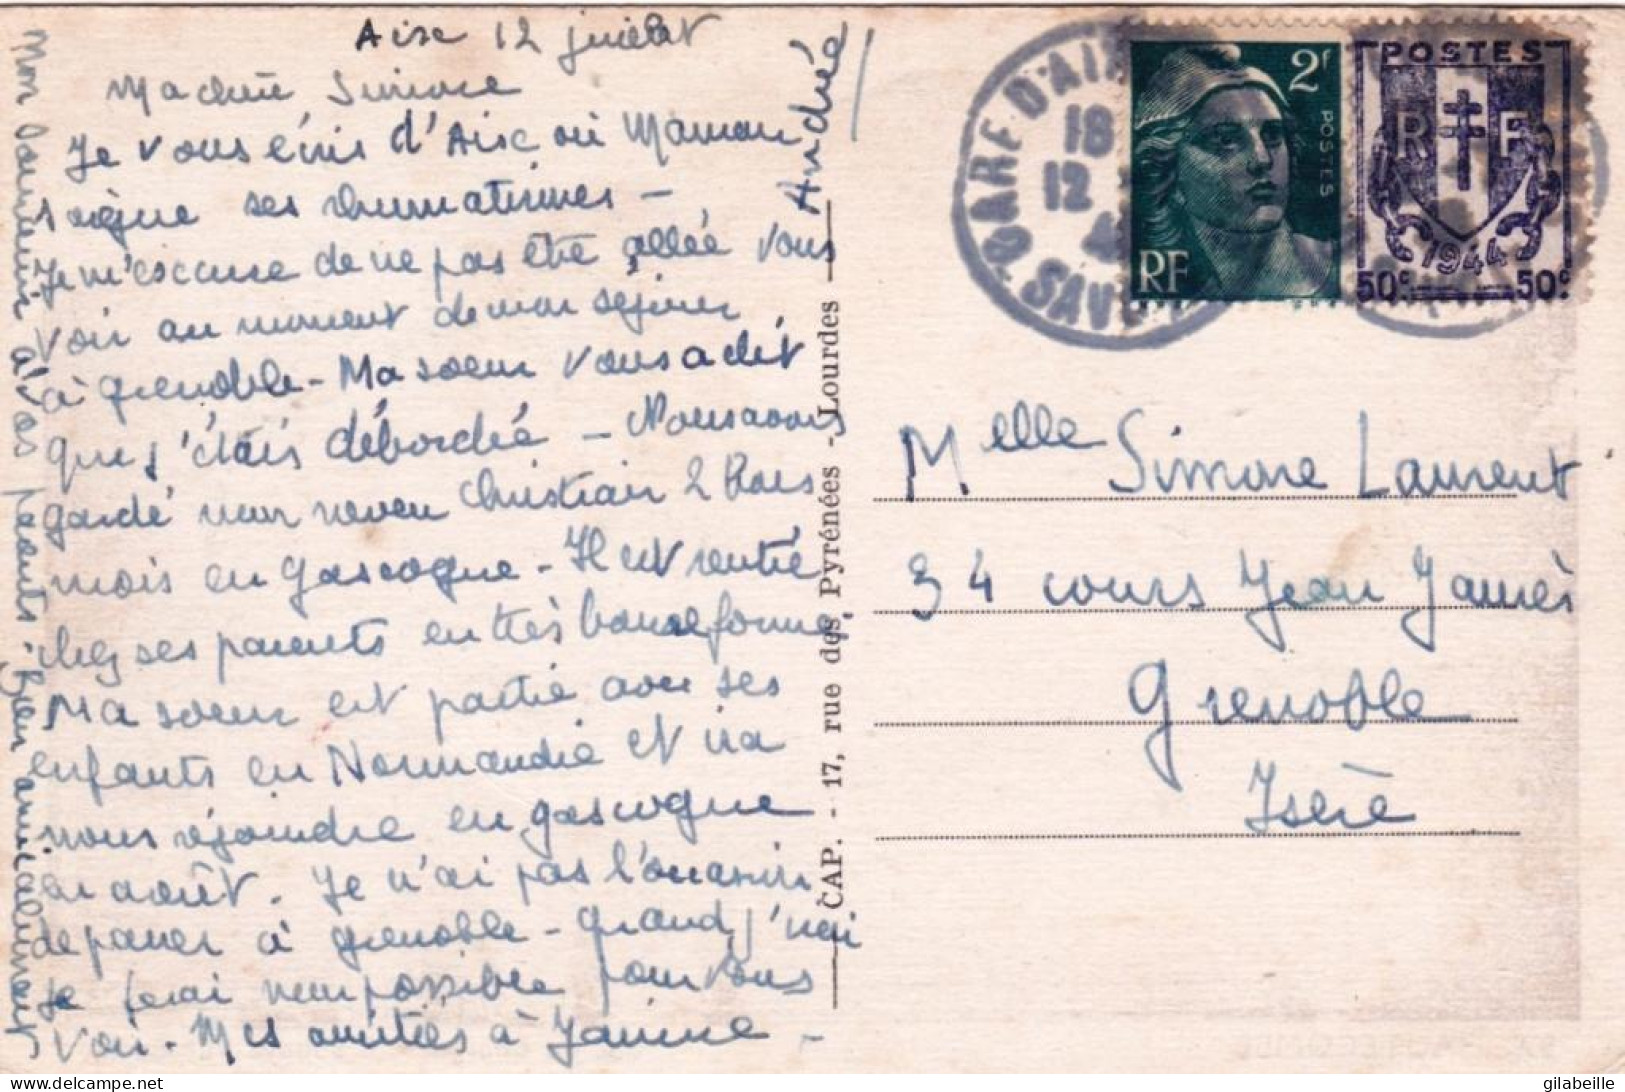 Aix 12 juillet
Ma chère Simone
Je vous écris d'Aix où Maman
soigne ses rhumatismes -
Je m'excuse de ne pas être allée vous
voir au moment de mon séjour
à Grenoble - Ma soeur vous a dit
que j'étais débordée - Nous avons
gardé mon neveu Christian 2 bons
mois en Gascogne - Il est rentré
chez ses parents en très bonne forme,
Ma soeur est partie avec ses
enfants en Normandie et ira
nous rejoindre en Gascogne
en août. Je n'ai pas l'occasion
de passer à Grenoble - Quand j'irai
je ferai mon possible pour vous
voir - Mes amitiés à Janine -
Mon souvenir à vos parents - Bien amicalement
Andrée
CAP. - 17, rue des Pyrénées - Lourdes
GARE D'AIX
18
12
4
SAV
2F
POSTES
RF
POSTES
R F
1944
50c 50c
Melle Simone Laurent
34 cours Jean Jaurès
Grenoble
Isère
https://www.delcampe.net
gilabeille